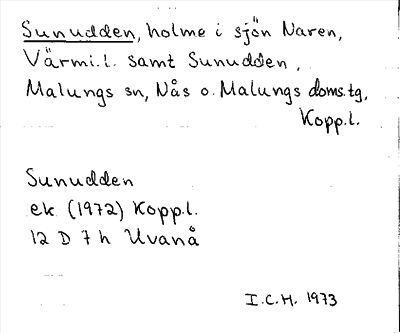 Sunudden, holme i sjön Naren,
Värml.l. samt Sunudden,
Malungs sn, Nås o. Malungs doms.tg,
Kopp.l.
Sunudden
ek (1972) Kopp.l.
12 D 7 h Uvanå
I.C.H. 1973